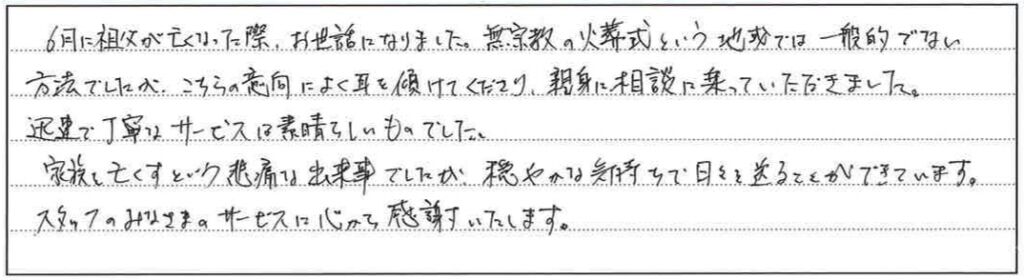 6月に祖父が亡くなった際、お世話になりました。無宗教の火葬式という地域では一般的でない
方法でしたが、こちらの意向によく耳を傾けてくださり、親身に相談に乗っていただきました。
迅速で丁寧なサービスは素晴らしいものでした。
家族を亡くすという悲痛な出来事でしたが、穏やかな気持ちで日々を送ることができています。
スタッフのみなさまのサービスに心から感謝いたします。